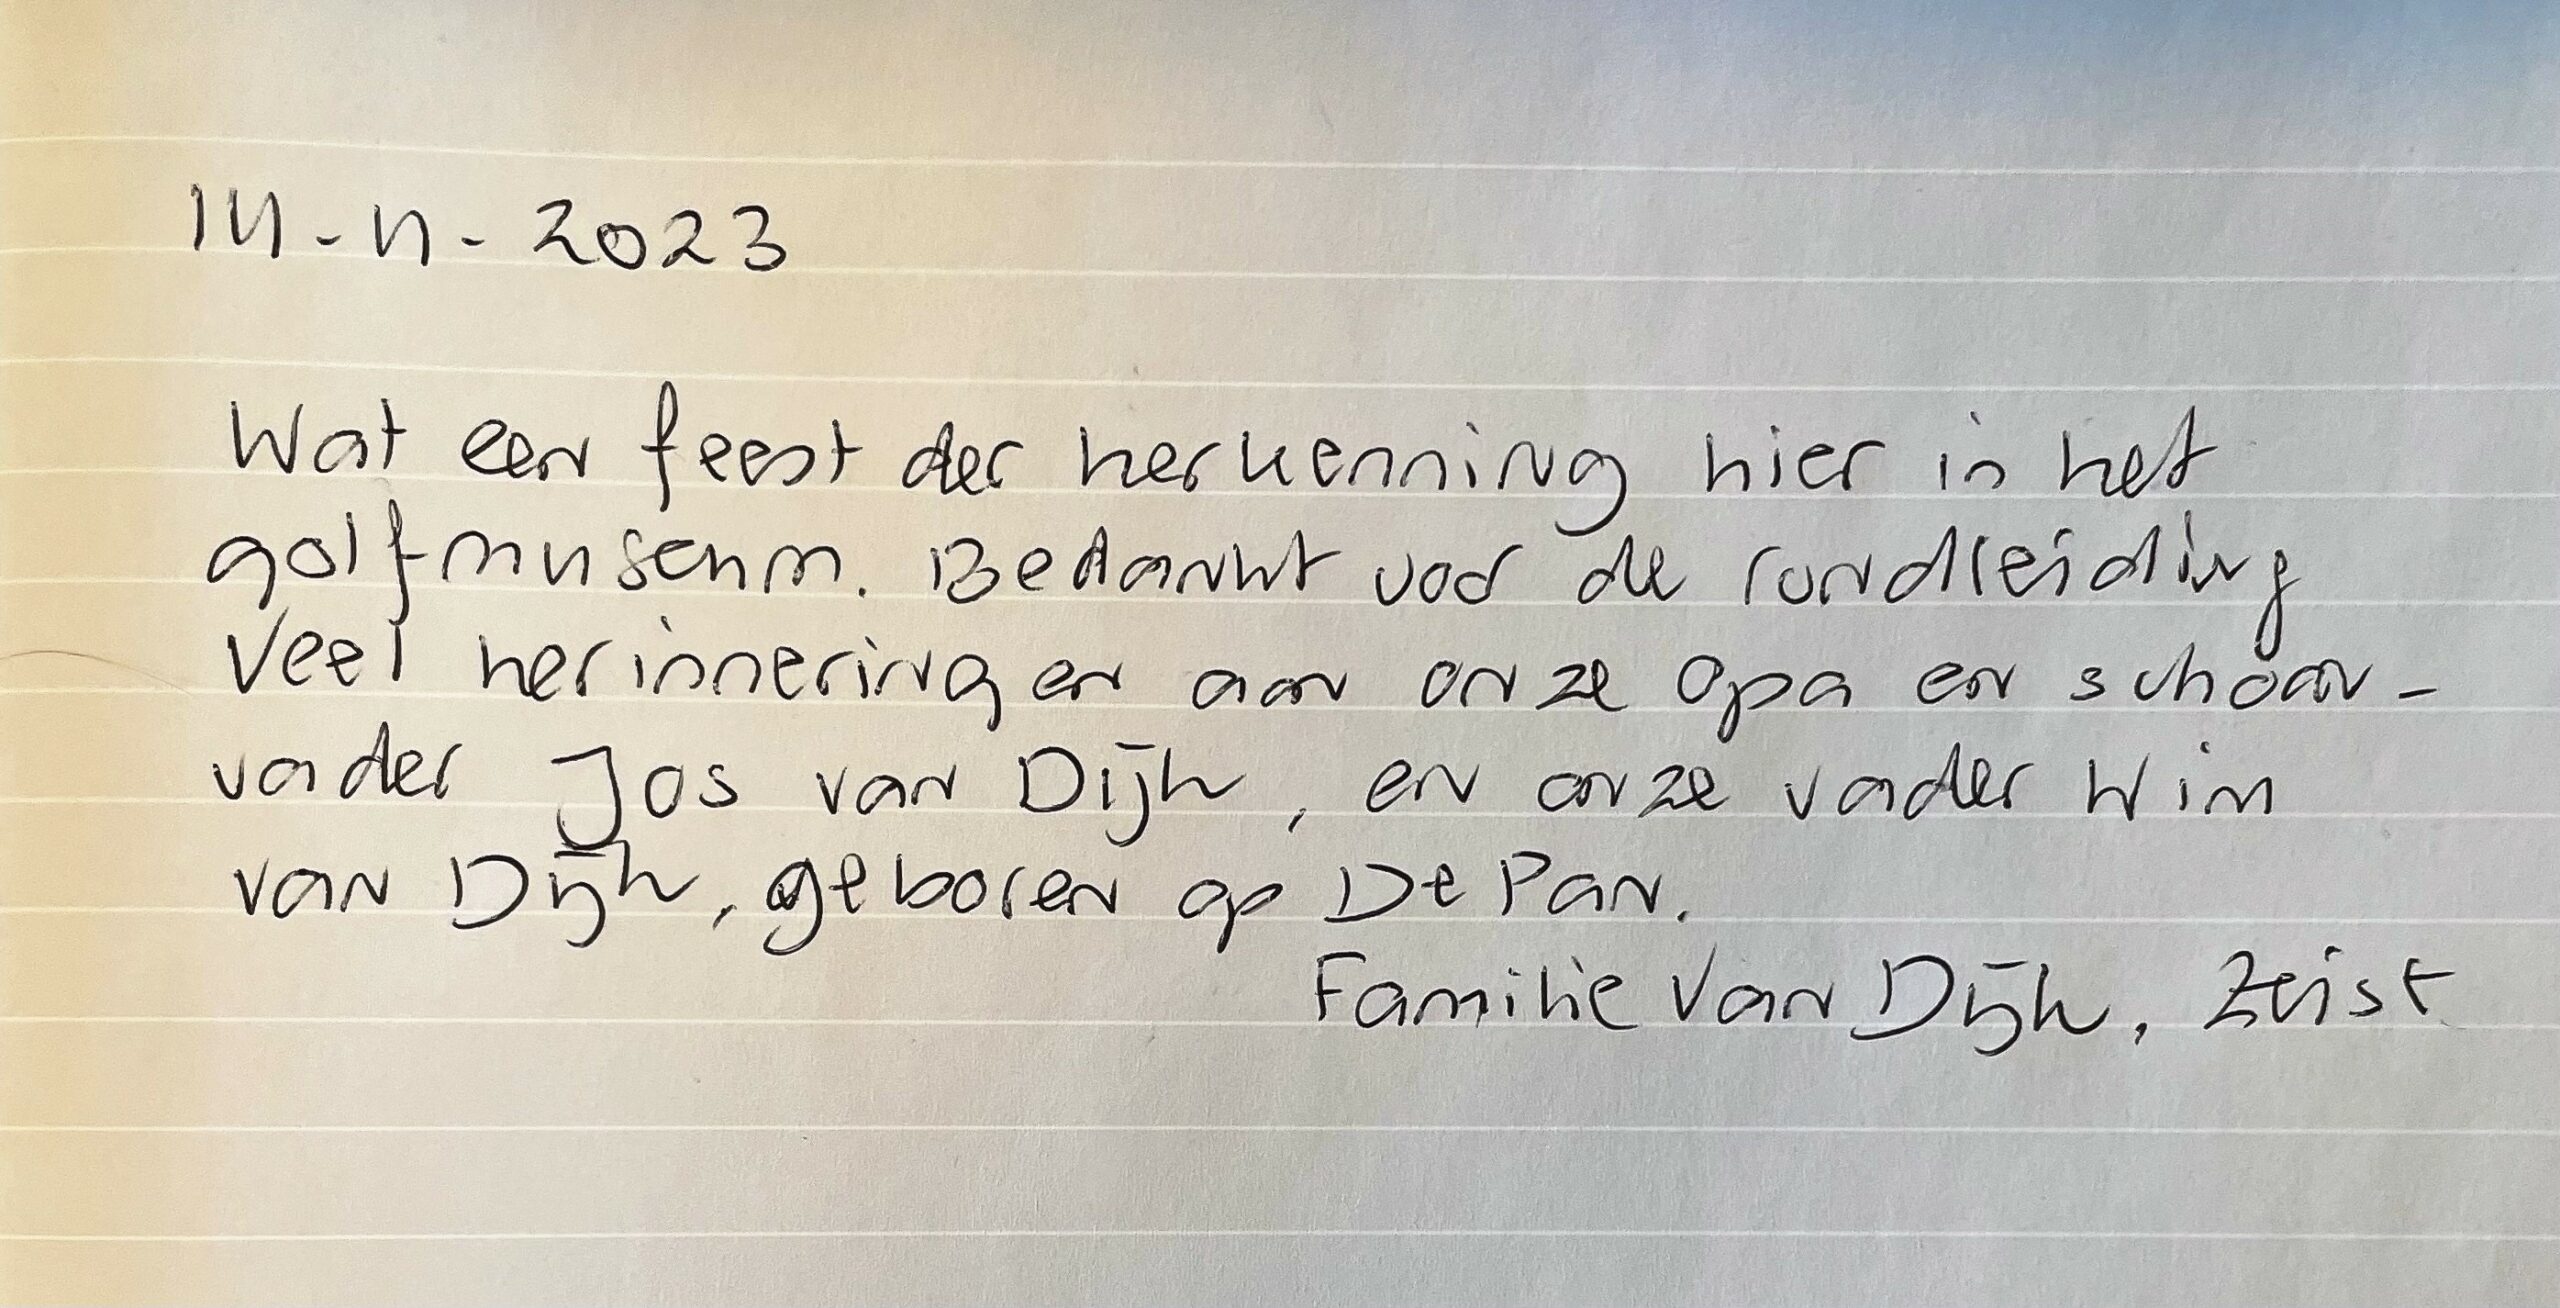 14-11-2023
Wat een feest der herkenning hier in het
golfmuseum. Bedankt voor de rondleiding
Veel herinneringen aan onze opa en schoon-
vader Jos van Dijk, en onze vader Wim
van Dijk, geboren op De Pan.
Familie Van Dijk, Zeist